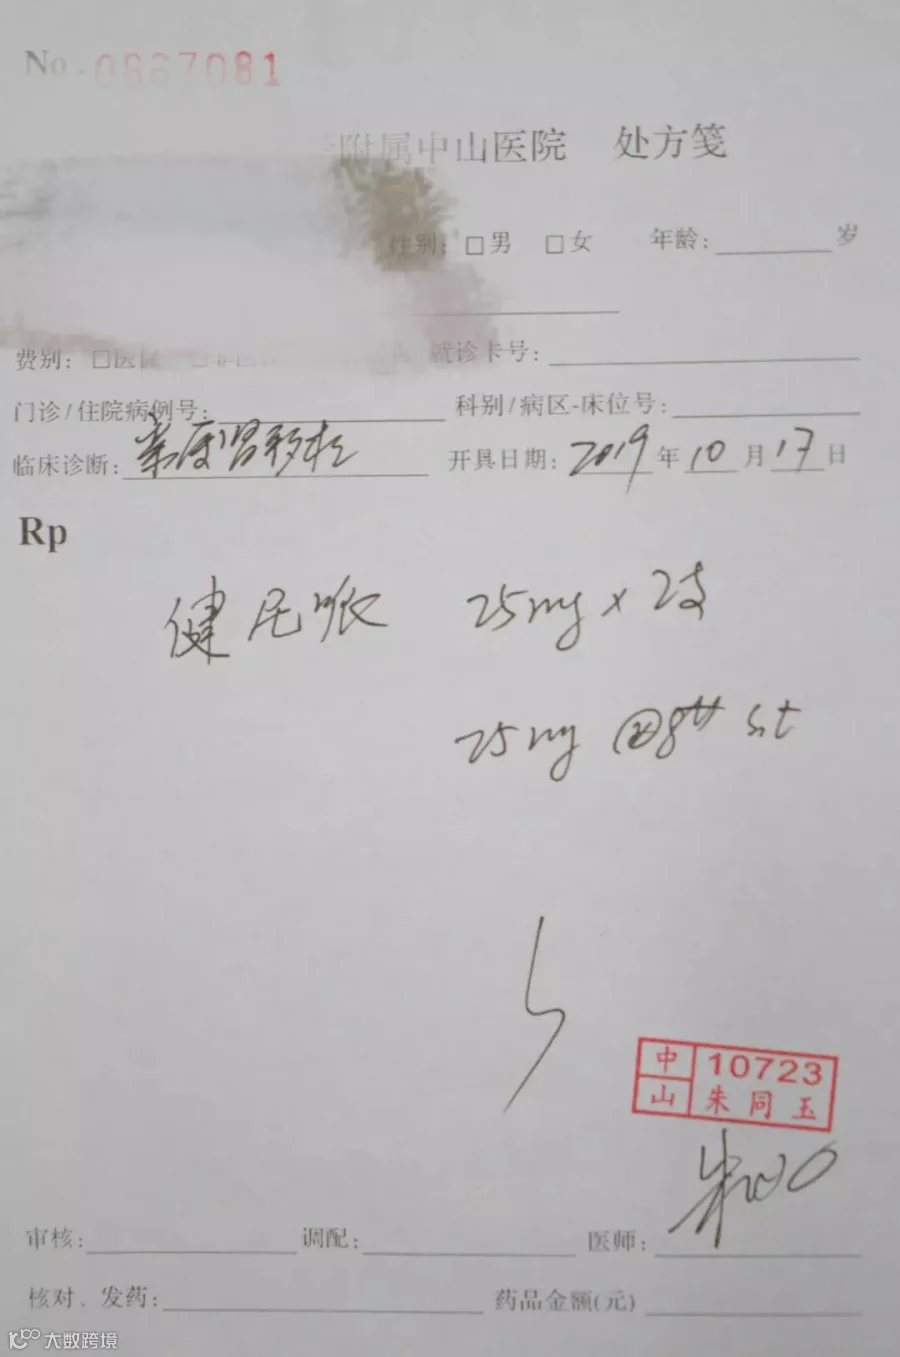 No. 0867081
附属中山医院 处方笺
性别: □男 □女 年龄: 岁
费别: □医保 就诊卡号:
门诊/住院病例号: 科别/病区-床位号:
临床诊断: 亲属肾移植 开具日期: 2019年10月17日
Rp
健尼哌 25mg x 2支
25mg st
中山 10723
朱同玉
审核: 调配: 医师:
核对、发药: 药品金额(元)
大数跨境